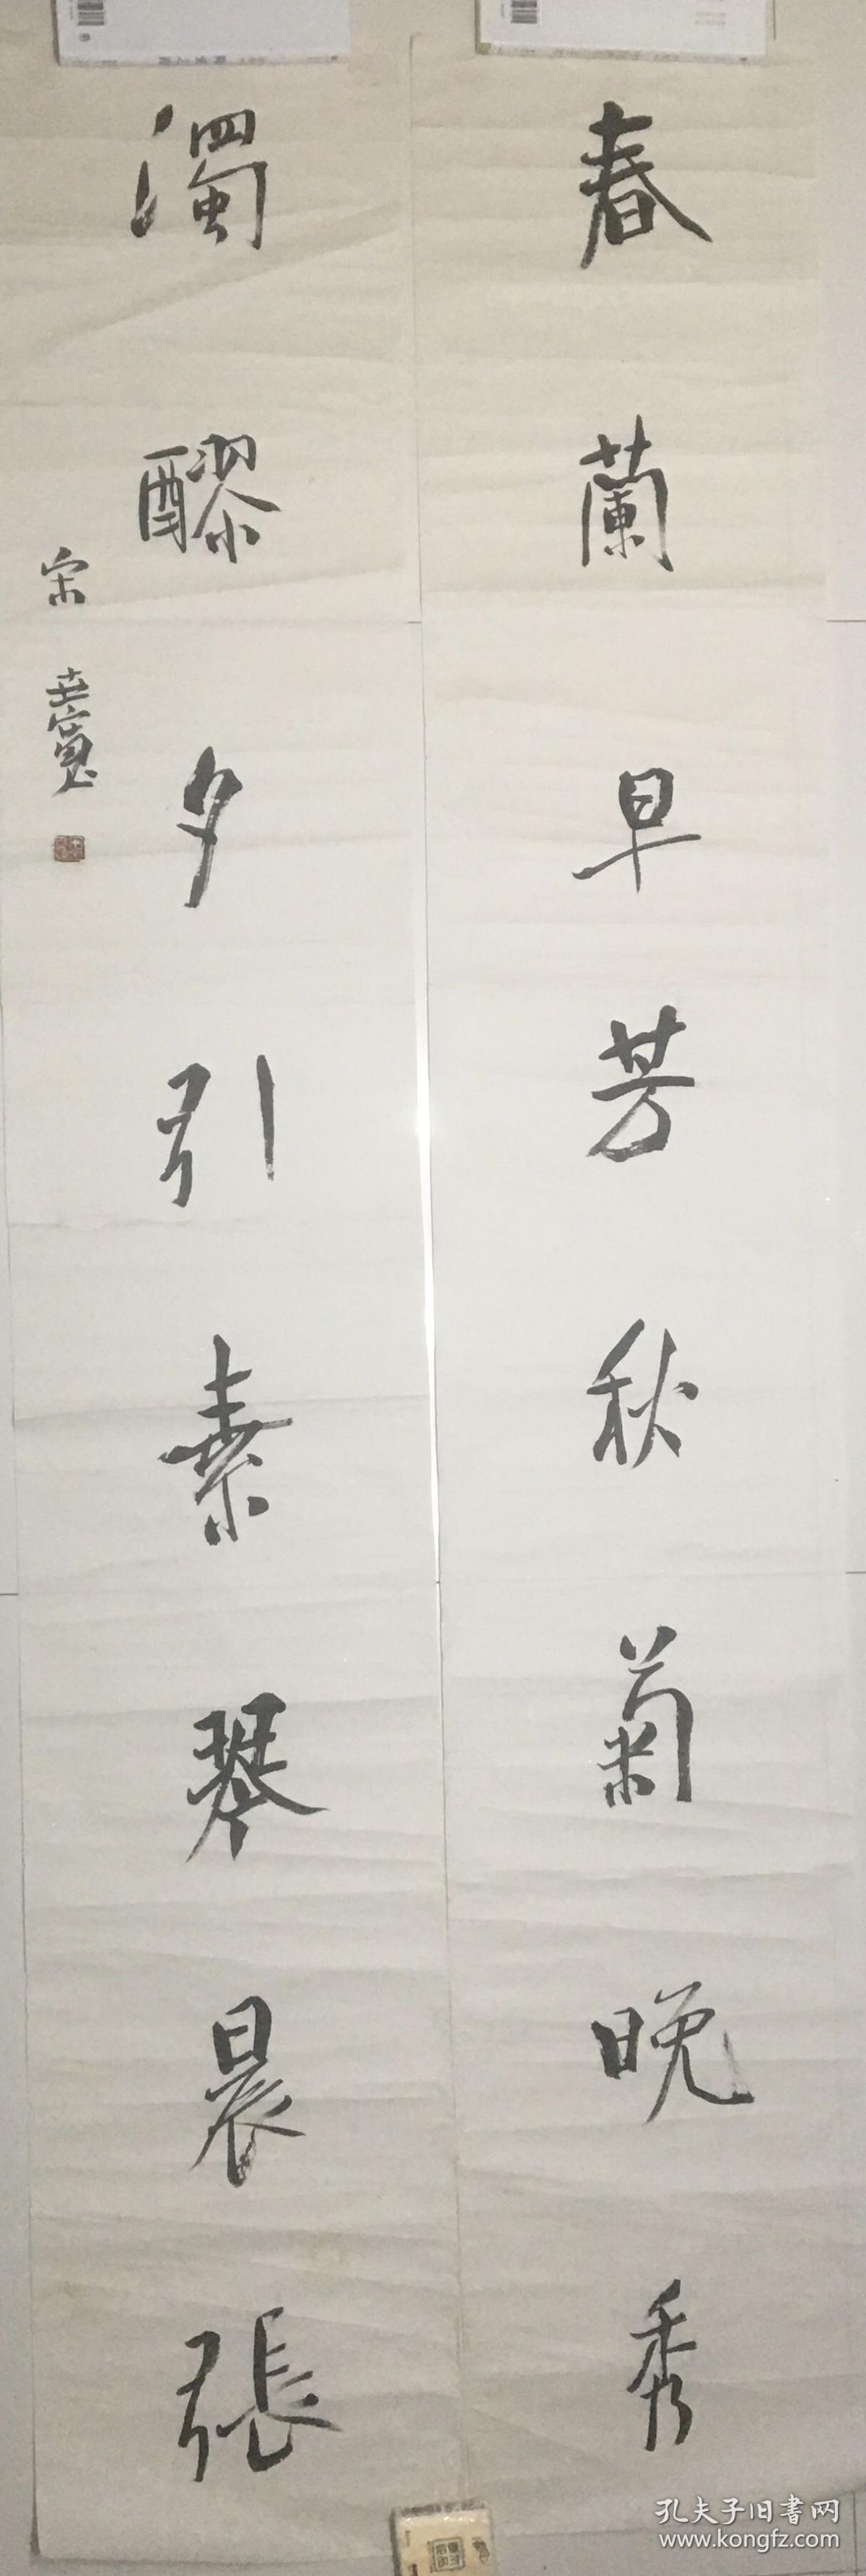 春蘭早芳秋菊晚秀
濁醪夕引素琴晨張
宋
孔夫子旧書网
www.kongfz.com